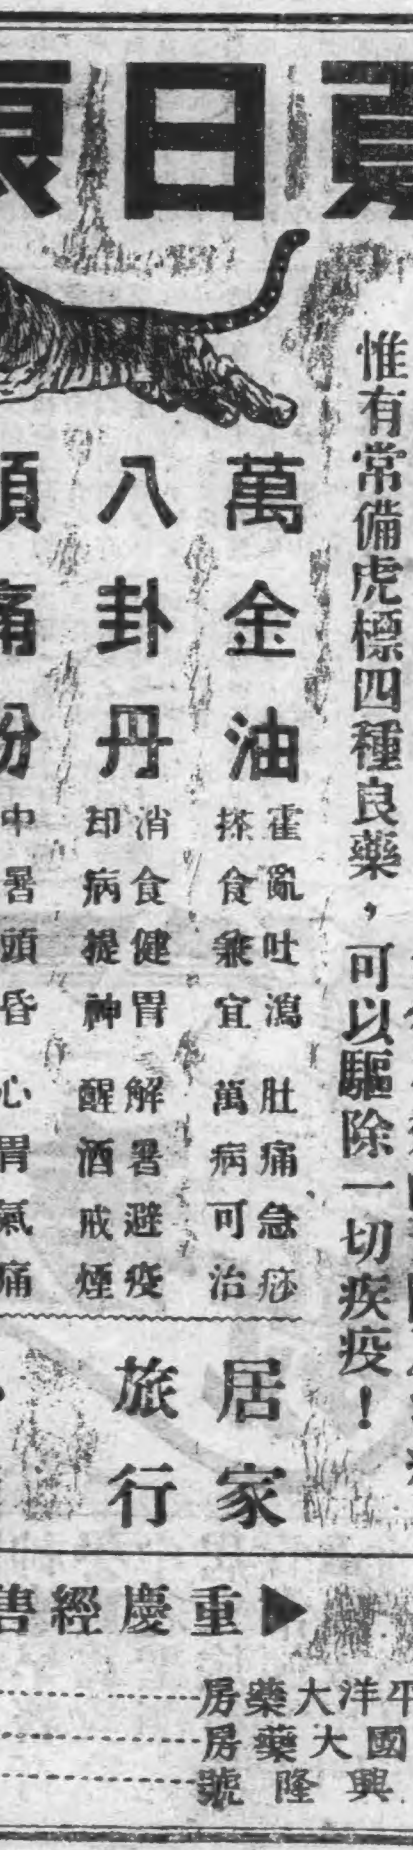 日
惟有常備虎標四種良藥，可以驅除一切疾疫！
萬金油
霍亂吐瀉 肚痛急痧
搽食兼宜 萬病可治
八卦丹
消食健胃 解暑避疫
却病提神 醒酒戒煙
頭痛粉
中暑頭昏 心胃氣痛
居家
旅行
▶重慶經售
平洋大藥房
國大藥房
興隆號